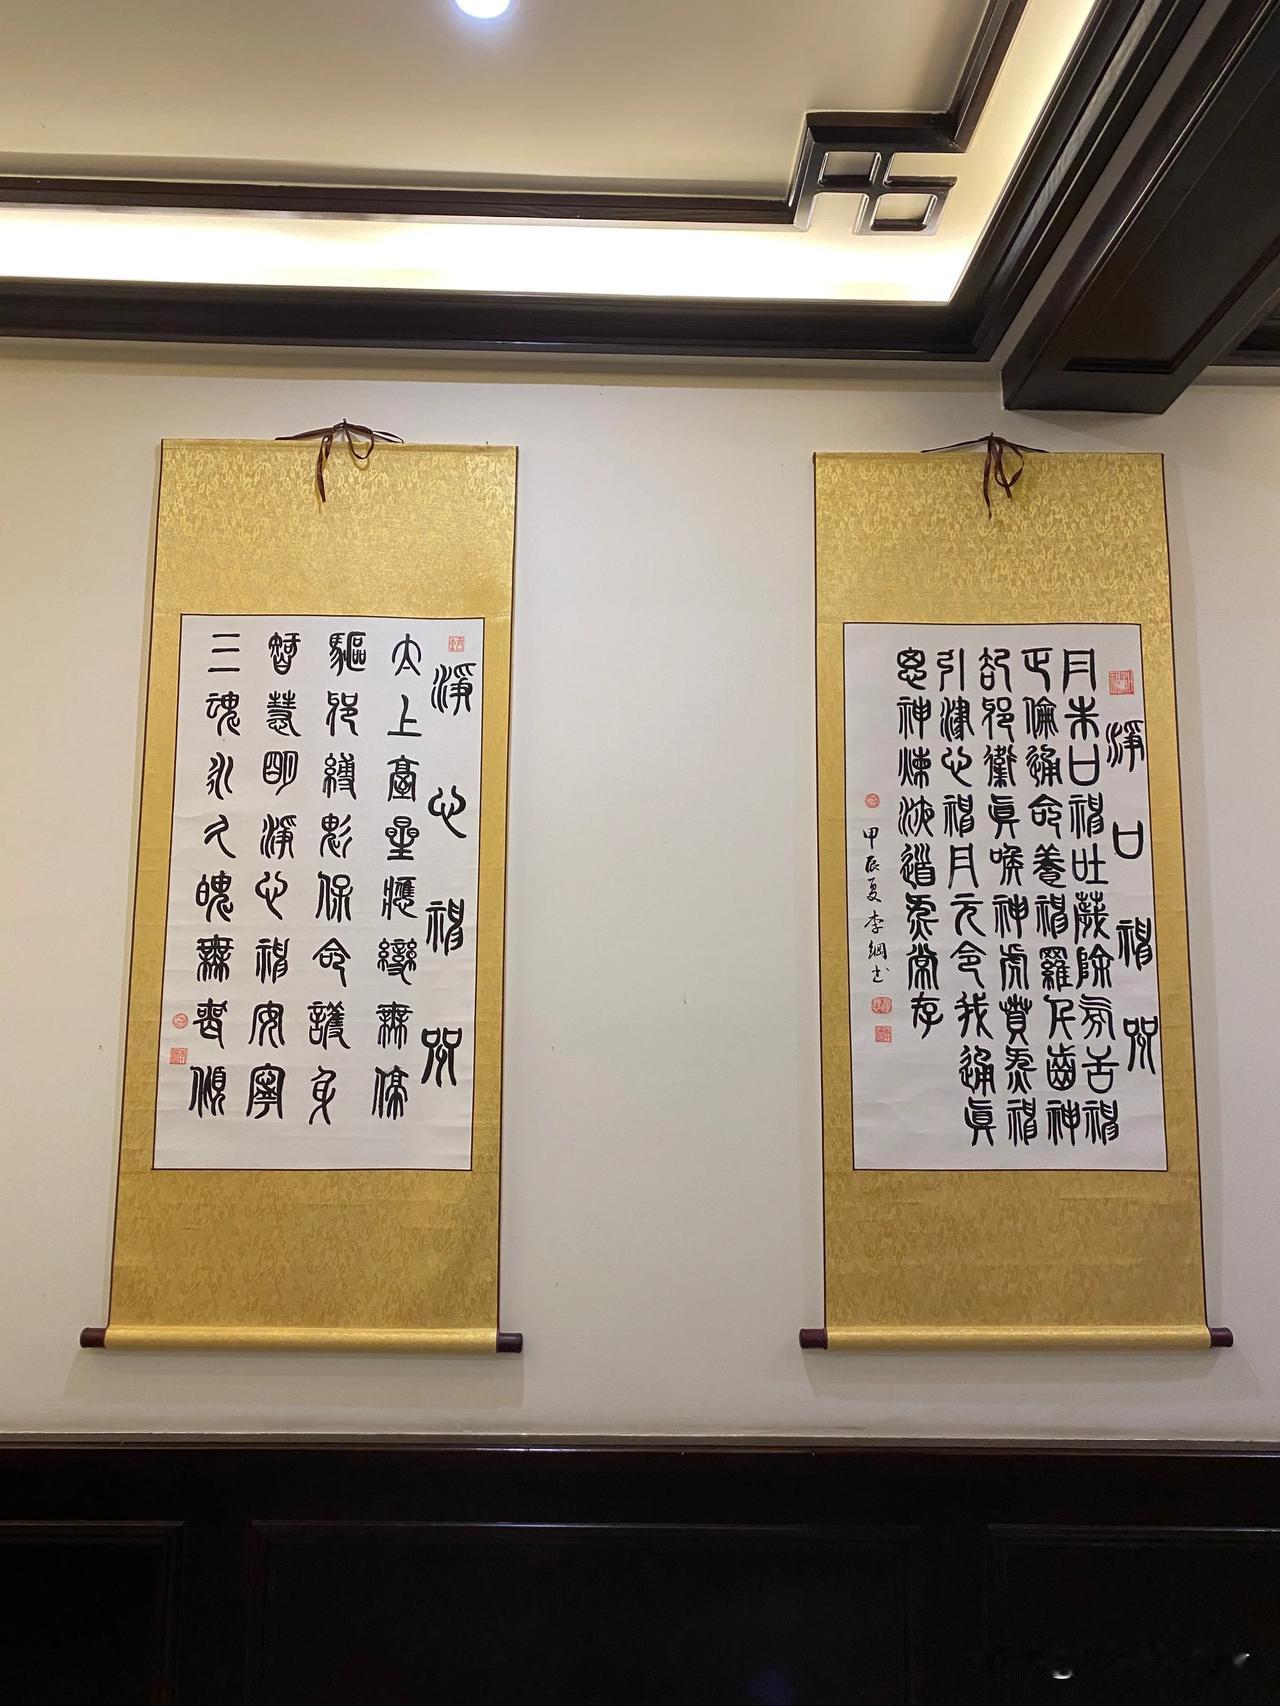 淨口神咒
丹朱口神吐薉除氛舌神
正倫通命養神羅千齒神
卻邪衛真喉神虎賁炁神
引津心神丹元令我通真
思神煉液道炁常存
甲辰夏李綱书
淨心神咒
太上臺星應變無停
驅邪縛魅保命護身
智慧明淨心神安寧
三魂永久魄無喪傾